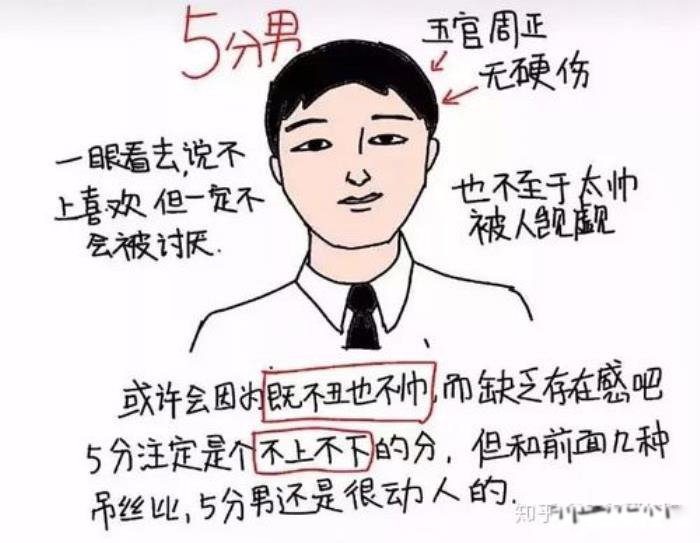 5分男
五官周正
无硬伤
一眼看去,说不
上喜欢 但一定不
会被讨厌.
也不至于太帅
被人觊觎
或许会因为既不丑也不帅,而缺乏存在感吧
5分注定是个不上不下的分,但和前面几种
吊丝比,5分男还是很动人的.
知乎